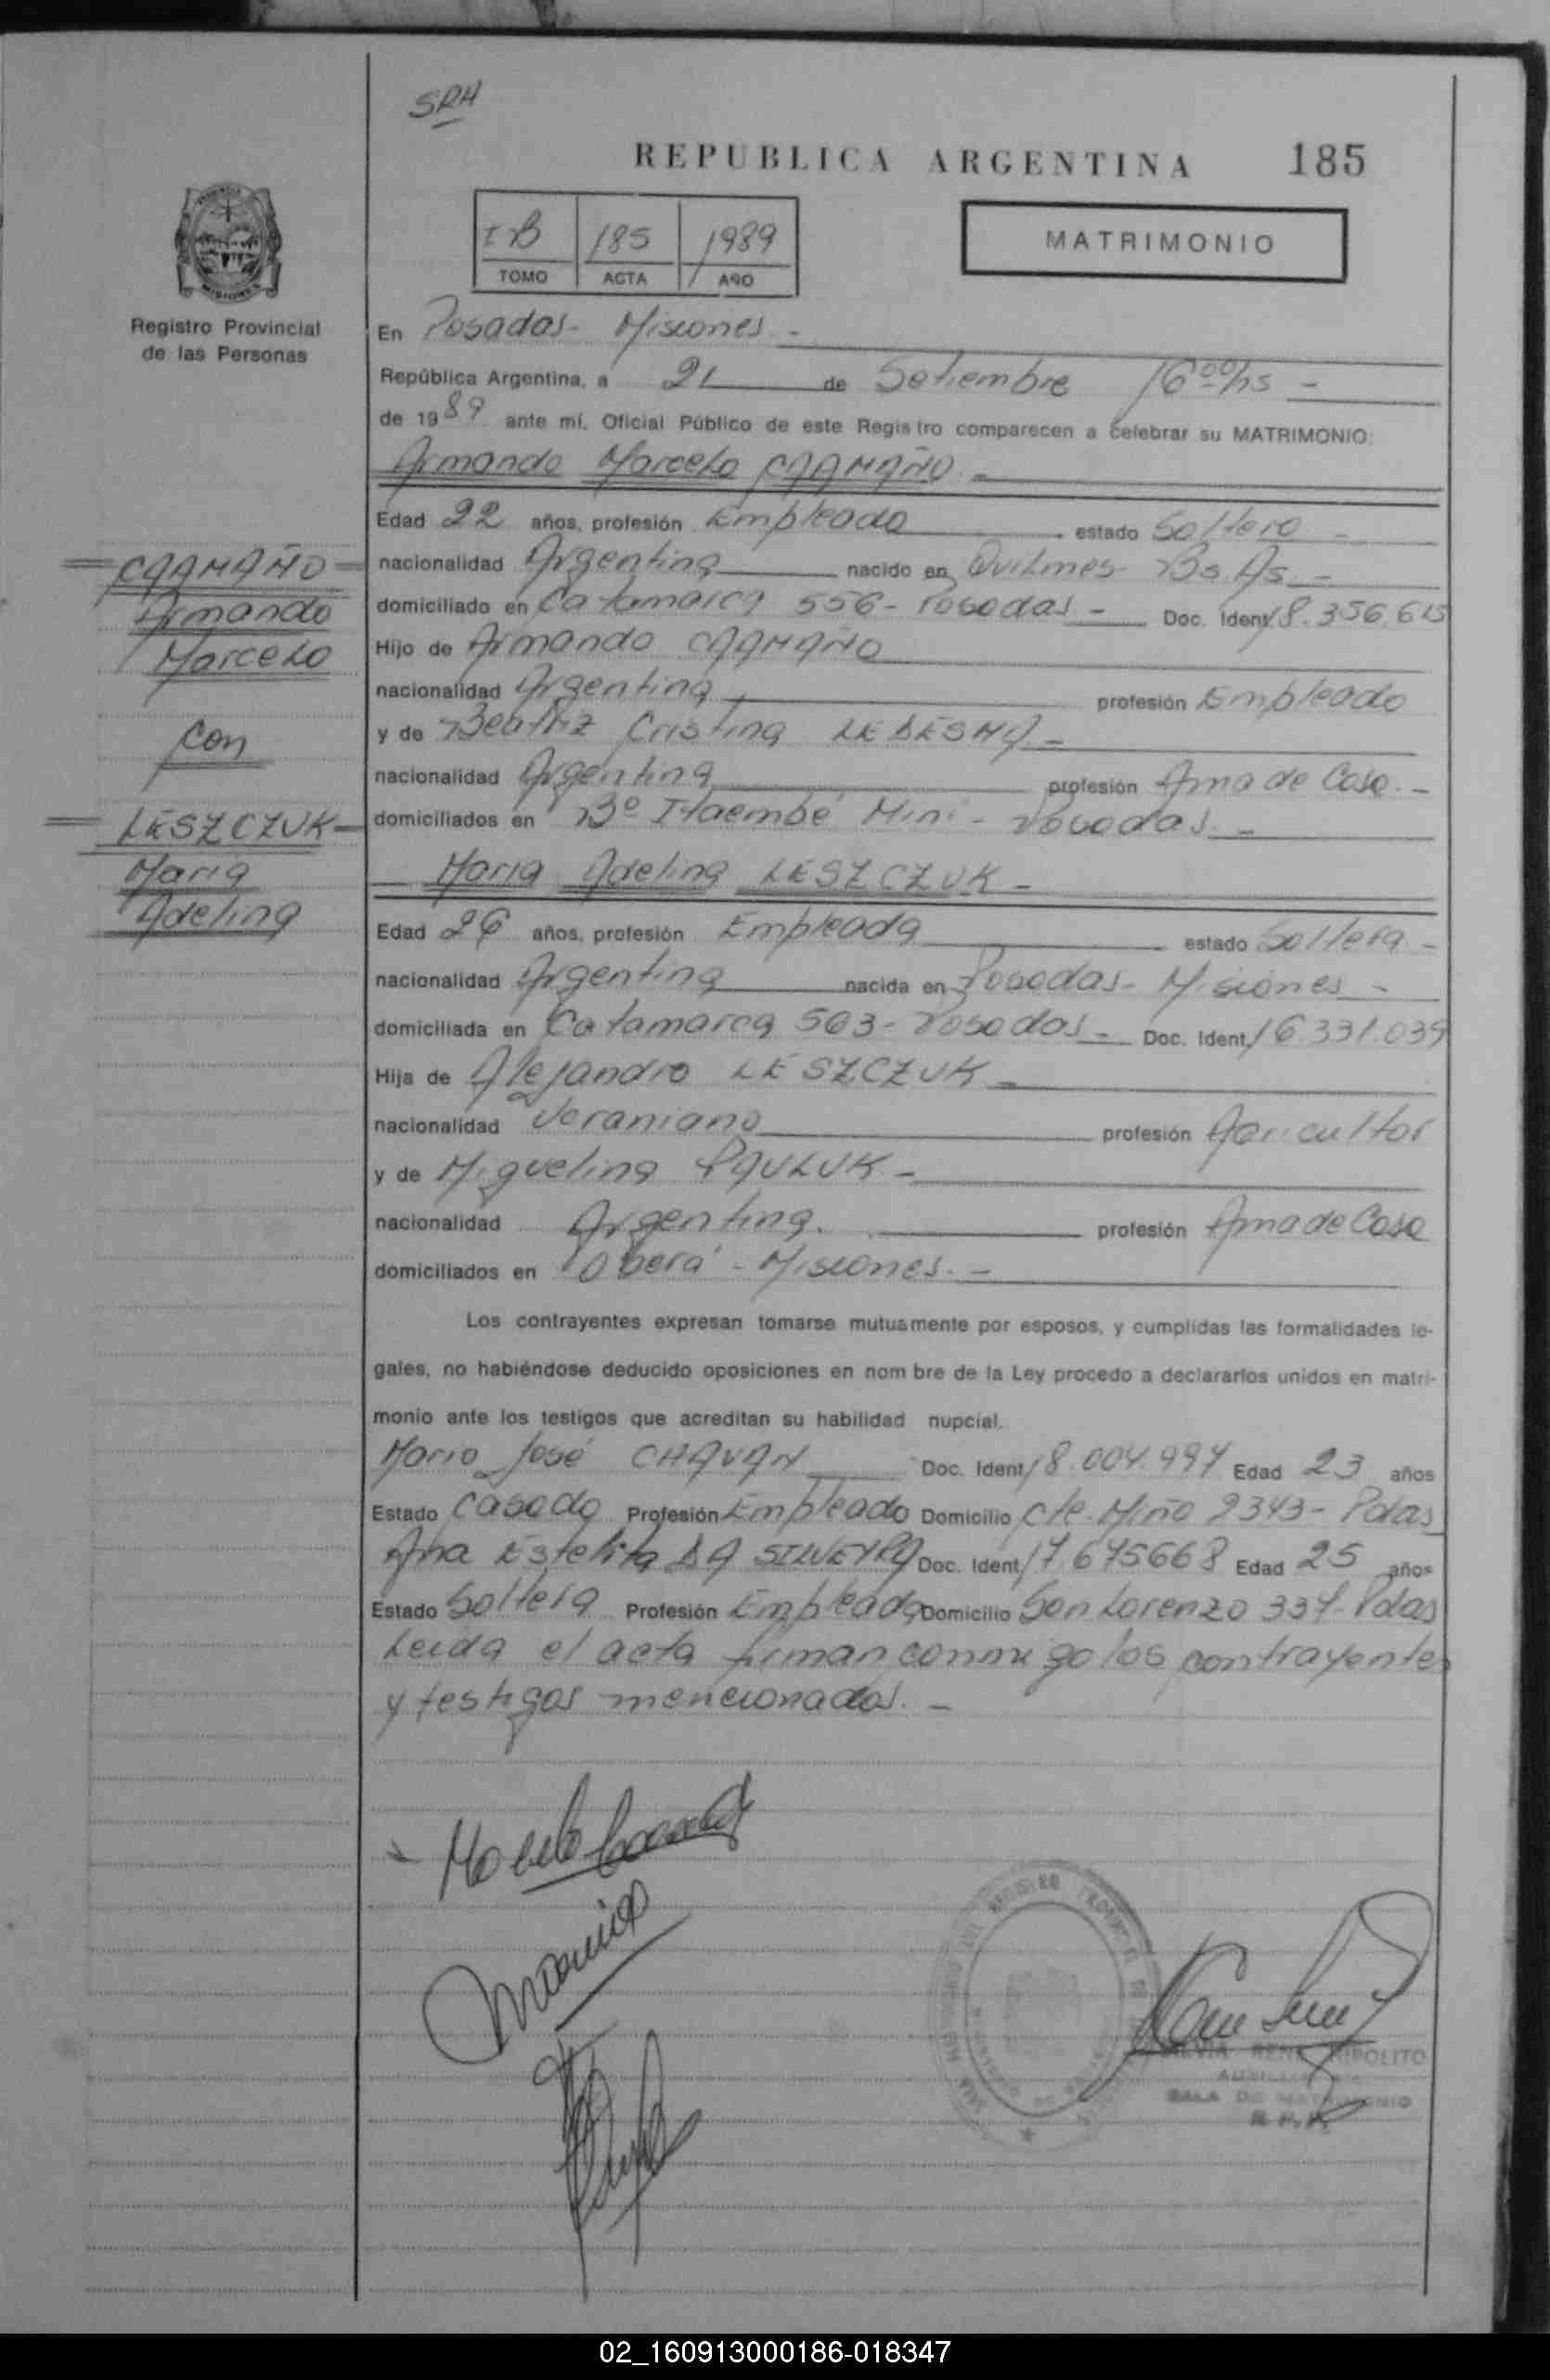 SRH
REPUBLICA ARGENTINA 185
185 1989
TOMO ACTA AÑO
MATRIMONIO
Registro Provincial
de las Personas
En Posadas - Misiones -
República Argentina, a 21 de Setiembre 16 00 hs -
de 1989 ante mí, Oficial Público de este Registro comparecen a celebrar su MATRIMONIO:
Armando Marcelo CAAMAÑO -
Edad 22 años, profesión Empleado estado Soltero -
nacionalidad Argentina nacido en Quilmes - Bs. As. -
domiciliado en Catamarca 556 - Posadas - Doc. Ident. 18.356.615
Hijo de Armando CAAMAÑO
nacionalidad Argentina profesión Empleado
y de Beatriz Cristina LEDESMA -
nacionalidad Argentina profesión Ama de Casa. -
domiciliados en Bº Itaembé Mini - Posadas. -
CAAMAÑO
Armando
Marcelo
con
LESZCZUK
Maria
Adelina
Maria Adelina LESZCZUK -
Edad 26 años, profesión Empleada estado Soltera -
nacionalidad Argentina nacida en Posadas - Misiones -
domiciliada en Catamarca 563 - Posadas - Doc. Ident. 16.331.039
Hija de Alejandro LESZCZUK -
nacionalidad Ucraniano profesión Agricultor
y de Miguelina PAULUK -
nacionalidad Argentina. profesión Ama de Casa
domiciliados en Oberá - Misiones. -
Los contrayentes expresan tomarse mutuamente por esposos, y cumplidas las formalidades le-
gales, no habiéndose deducido oposiciones en nom bre de la Ley procedo a declararlos unidos en matri-
monio ante los testigos que acreditan su habilidad nupcial.
Mario José CHAVAN Doc. Ident. 18.004.997 Edad 23 años
Estado Casado Profesión Empleado Domicilio Cte. Miño 2343 - Pdas
Ana Estelita DA SILVEYRA Doc. Ident. 17.675668 Edad 25 años
Estado Soltera Profesión Empleada Domicilio San Lorenzo 337 - Pdas
Leida el acta firman conmigo los contrayentes
y testigos mencionados. -
RENE HIPOLITO
SALA DE MATRIMONIO
02_160913000186-018347